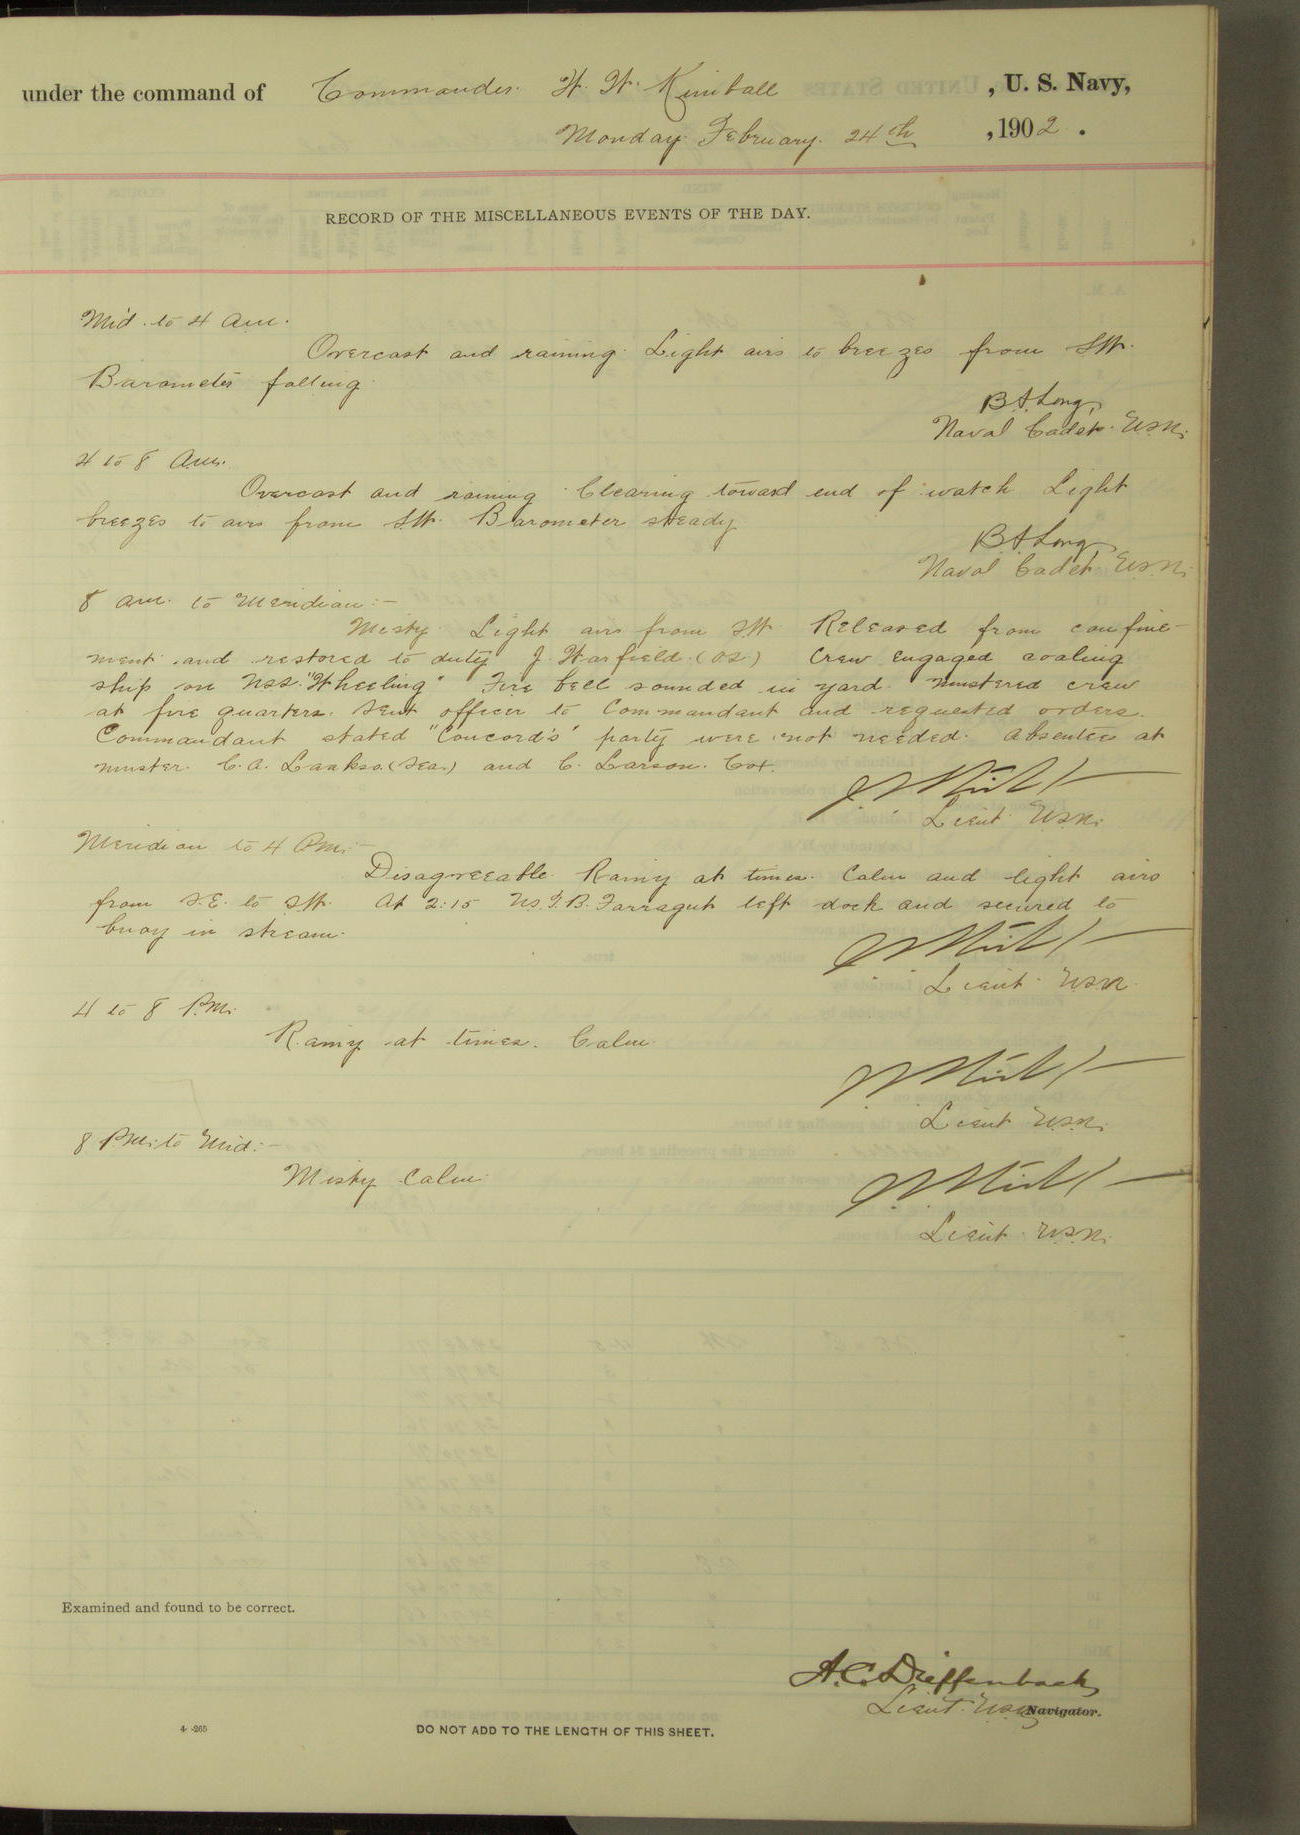 under the command of Commander W. W. Kimball , U. S. Navy,
Monday February 24th , 1902.
RECORD OF THE MISCELLANEOUS EVENTS OF THE DAY.
Mid. to 4 a.m.
Overcast and raining. Light airs to breezes from SW.
Barometer falling.
Naval Cadet. U.S.N.
4 to 8 a.m.
Overcast and raining. Clearing toward end of watch Light
breezes to airs from SW. Barometer steady
Naval Cadet U.S.N.
8 a.m. to Meridian:—
Misty Light airs from SW Released from confine-
ment and restored to duty J. Warfield (OS) Crew engaged coaling
ship on U.S.S. "Wheeling" Fire bell sounded in yard. Mustered crew
at fire quarters. Sent officer to Commandant and requested orders.
Commandant stated "Concord's" party were not needed. Absentees at
muster. C. A. Laakso. (Sea.) and C. Larson. Cox.
Lieut U.S.N.
Meridian to 4 P.M.:—
Disagreeable. Rainy at times. Calm and light airs
from S.E. to SW. At 2:15 U.S.T.B. Farragut left dock and secured to
buoy in stream.
Lieut. U.S.N.
4 to 8 P.M.
Rainy at times. Calm.
Lieut U.S.N.
8 P.M. to Mid:—
Misty Calm.
Lieut. U.S.N.
Examined and found to be correct.
A. C. Dieffenbach
Lieut. U.S.N. Navigator.
4-265
DO NOT ADD TO THE LENGTH OF THIS SHEET.